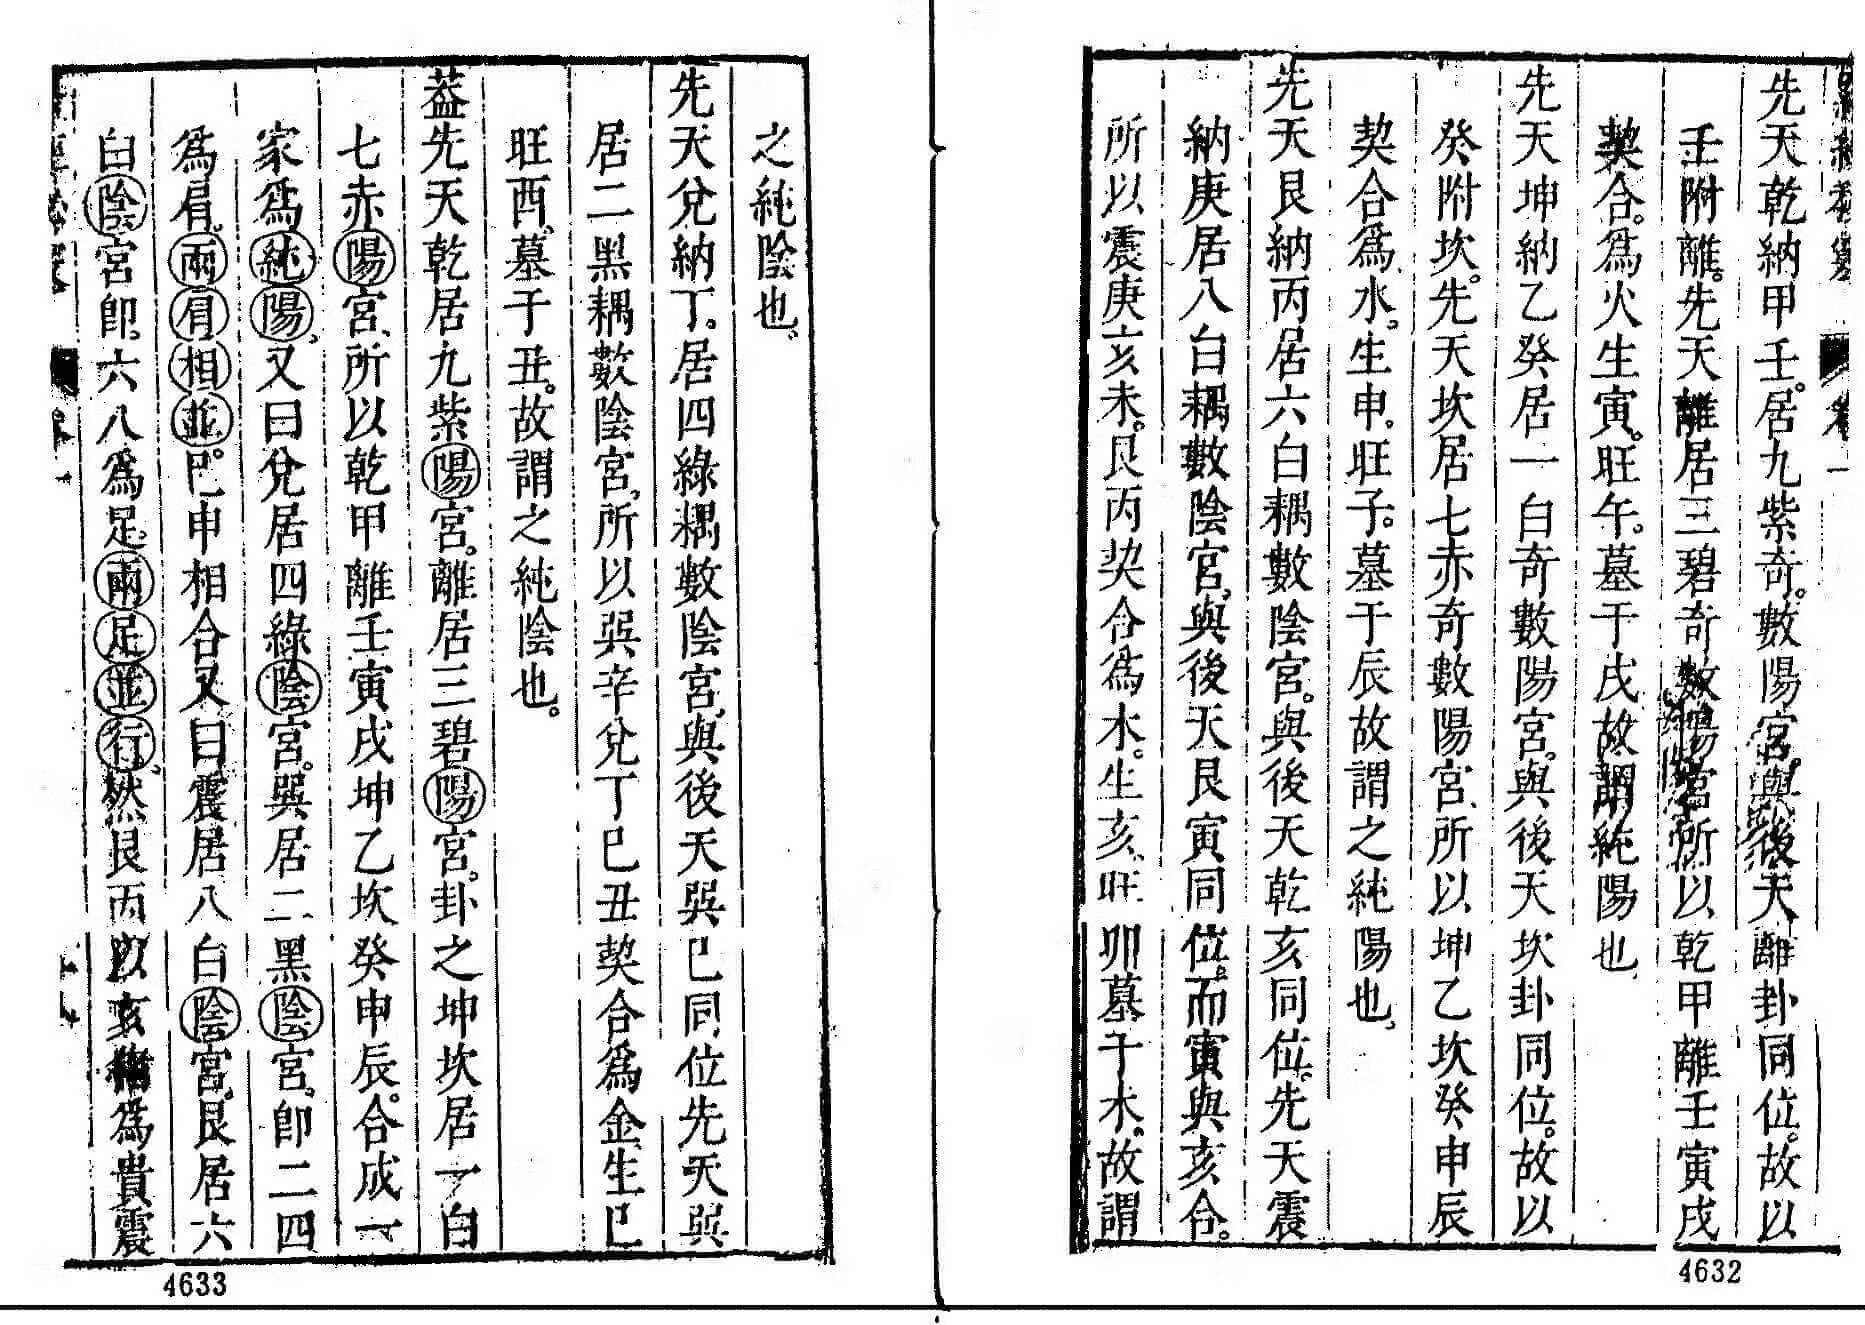 先天乾納甲壬。居九紫奇。數陽宮。與後天離卦同位。故以
壬附離。先天離居三碧奇數陽宮所以乾甲離壬寅戌
契合。爲火生寅。旺午。墓于戌故謂純陽也、
先天坤納乙癸居一白奇數陽宮。與後天坎卦同位。故以
癸附坎。先天坎居七赤奇數陽宮、所以坤乙坎癸申辰
契合爲水。生申。旺子。墓于辰故謂之純陽也、
先天艮納丙居六白耦數陰宮。與後天乾亥同位。先天震
納庚居八白耦數陰宮。與後天艮寅同位。而寅與亥合。
所以震庚亥未。艮丙契合爲木。生亥。旺卯墓于木。故謂
4632
之純陰也、
先天兌納丁。居四綠耦數陰宮、與後天巽巳同位先天巽
居二黑耦數陰宮、所以巽辛兌丁巳丑契合爲金、生巳
旺酉、墓于丑。故謂之純陰也。
葢先天乾居九紫陽宮。離居三碧陽宮。卦之坤坎居一白
七赤陽宮、所以乾甲離壬寅戌坤乙坎癸申辰。合成一
家爲純陽、又曰兌居四綠陰宮。巽居二黑陰宮、卽二四
爲肩。兩肩相並。巳申相合又曰震居八白陰宮。艮居六
白陰宮卽。六八爲足。兩足並行、然艮丙以亥爲貴震
4633